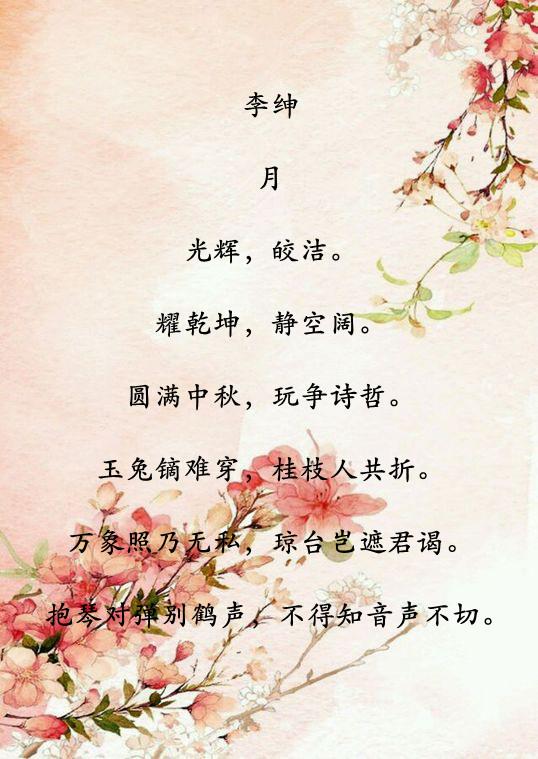 李绅
月
光辉，皎洁。
耀乾坤，静空阔。
圆满中秋，玩争诗哲。
玉兔镝难穿，桂枝人共折。
万象照乃无私，琼台岂遮君谒。
抱琴对弹别鹤声，不得知音声不切。